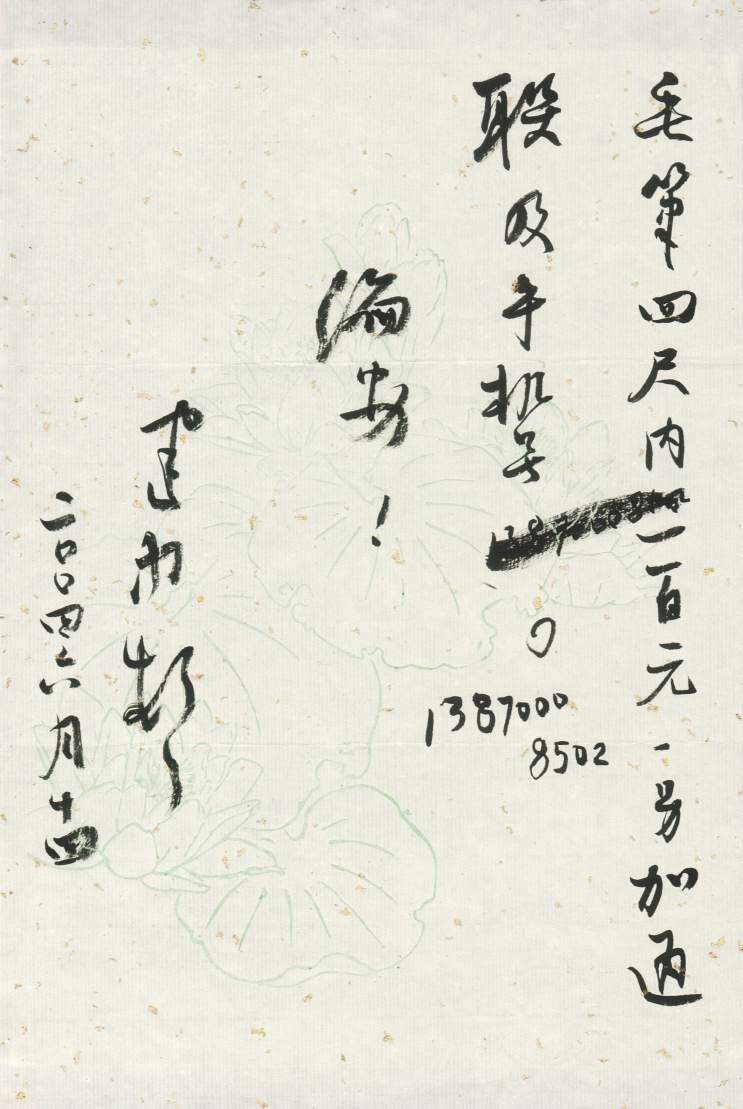 毛笔四尺内一百元一号加通
联及手机号
13870008502
安！
二〇〇四六月十四